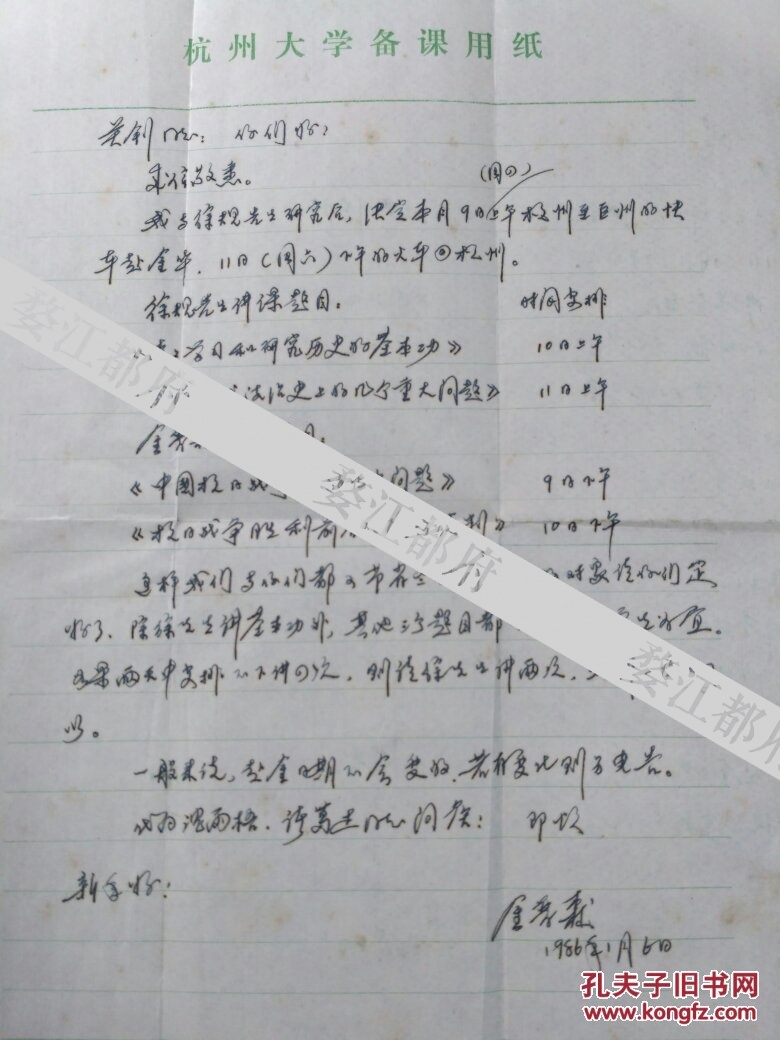 杭州大学备课用纸
剑同志：你们好！
来信敬悉。
(周四)
我与徐规先生研究后，决定本月9日上午杭州至巨州的快
车赴金华，11日(周六)下午的火车回杭州。
徐规先生讲课题目： 时间安排
学习和研究历史的基本功》 10日上午
政治史上的几个重大问题》 11日上午
金
《中国抗日战 问题》 9日下午
《抗日战争胜利前 》 10日下午
这样我们与你们都 对象请你们定
好了，除徐先生讲基本功外，其他三个题目都 为宜。
如果两天中安排不下讲四次，则请徐先生讲两次，
以。
一般来说，赴金日期不会变的，若有变化则另电告。
请 同志问候！ 即颂
新年好！
金
1986年1月6日
婺江都府
婺江都府
婺江都府
孔夫子旧书网
www.kongfz.com